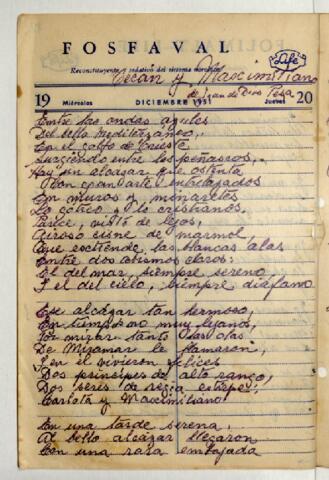 FOSFAVAL
Life
Reconstituyente y sedativo del sistema nervioso
y Maximiliano
de Juan de Dios Peza
19 Miércoles DICIEMBRE 1951 Jueves 20
Entre las ondas azules
Del bello mediterráneo,
En el golfo de Trieste
Surgiendo entre los peñascos,
Hay un alcázar que ostenta
Con gran arte entrelazados
En muros y minaretes
Lo gótico y lo cristianos.
Parece, visto de lejos,
Airoso cisne de marmol,
Que extiende las blancas alas
Entre dos abismos claros:
El del mar, siempre sereno,
Y el del cielo, siempre diáfano
Ese alcázar tan hermoso,
En tiempo no muy lejanos,
Por mirar tanto las olas
De Miramar le llamaron,
Y en el vivieron felices
Dos principes de alto rango,
Dos seres de regia estirpe:
Carlota y Maximiliano
En una tarde serena,
Al bello alcázar llegaron
Con una rara embajada